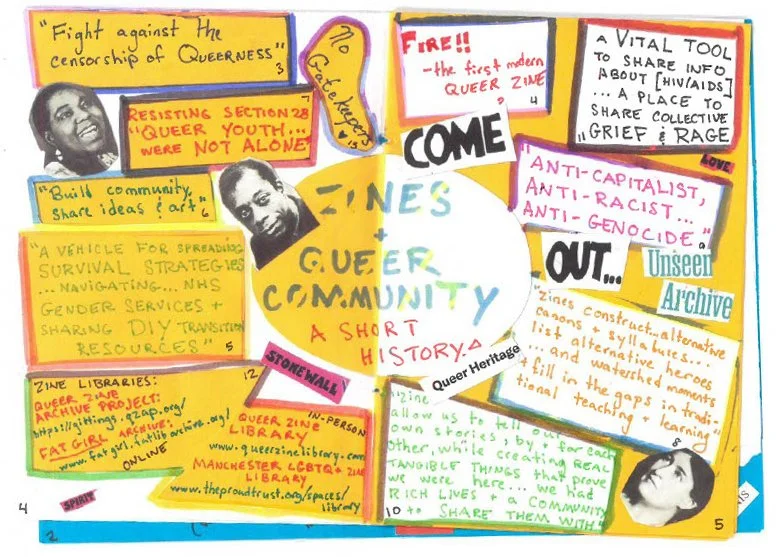 "Fight against the
censorship of QUEERNESS"
3
No
Gatekeepers
♥ 13
RESISTING SECTION 28
7
"QUEER YOUTH...
WERE NOT ALONE"
"Build community,
share ideas & art"
6
"A VEHICLE FOR SPREADING
SURVIVAL STRATEGIES
...NAVIGATING... NHS
GENDER SERVICES +
SHARING DIY TRANSITION
RESOURCES"
5
FIRE!!
- the first modern
QUEER ZINE
4
A VITAL TOOL
TO SHARE INFO
ABOUT [HIV/AIDS]
... A PLACE TO
SHARE COLLECTIVE
"GRIEF & RAGE
LOVE
COME
"ANTI-CAPITALIST,
ANTI-RACIST...
ANTI-GENOCIDE"
OUT...
Unseen
Archive
ZINES
+
QUEER
COMMUNITY
A SHORT
HISTORY
STONEWALL
Queer Heritage
"zines construct...alternative
canons + syllabuses...
list alternative heroes
... and watershed moments
+ fill in the gaps in tradi-
tional teaching + learning"
8
ZINE LIBRARIES:
12
QUEER ZINE
ARCHIVE PROJECT:
https://gittings.qzap.org/
FAT GIRL ARCHIVE:
www.fatgirl.fatlibarchive.org/
ONLINE
IN-PERSON
QUEER ZINE
LIBRARY
www.queerzinelibrary.com
MANCHESTER LGBTQ+ ZINE
LIBRARY
www.theproudtrust.org/spaces/
library
allow us to tell our
own stories, by + for each
other, while creating REAL
TANGIBLE THINGS that prove
we were here... we had
RICH LIVES + a COMMUNITY
to SHARE THEM WITH."
10
SPIRIT
4
5
2